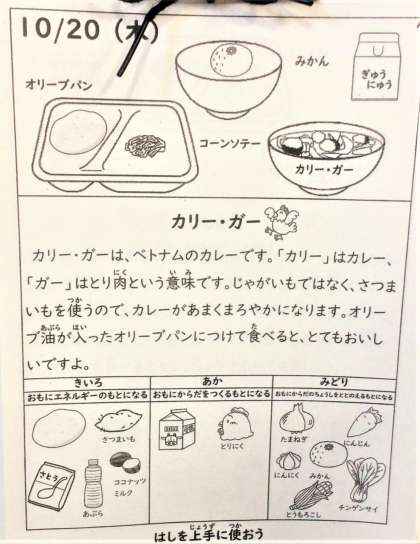 10/20（木）
みかん
ぎゅう
にゅう
オリーブパン
コーンソテー
カリー・ガー
カリー・ガー
カリー・ガーは、ベトナムのカレーです。「カリー」はカレー、
「ガー」はとり肉という意味です。じゃがいもではなく、さつま
いもを使うので、カレーがあまくまろやかになります。オリー
ブ油が入ったオリーブパンにつけて食べると、とてもおいし
いですよ。
きいろ
おもにエネルギーのもとになる
あか
おもにからだをつくるもとになる
みどり
おもにからだのちょうしをととのえるもとになる
さつまいも
さとう
あぶら
ココナッツ
ミルク
とりにく
たまねぎ
にんじん
にんにく
みかん
とうもろこし
チンゲンサイ
はしを上手に使おう